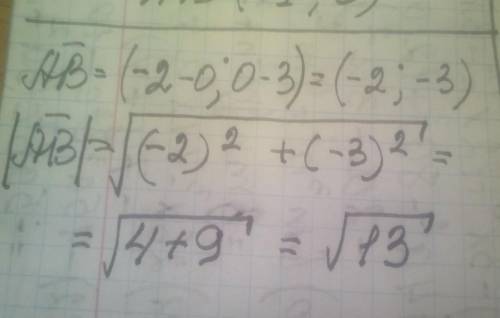 AB̅ = (-2-0; 0-3) = (-2; -3)
|AB̅| = √((-2)² + (-3)²) =
= √(4+9) = √13